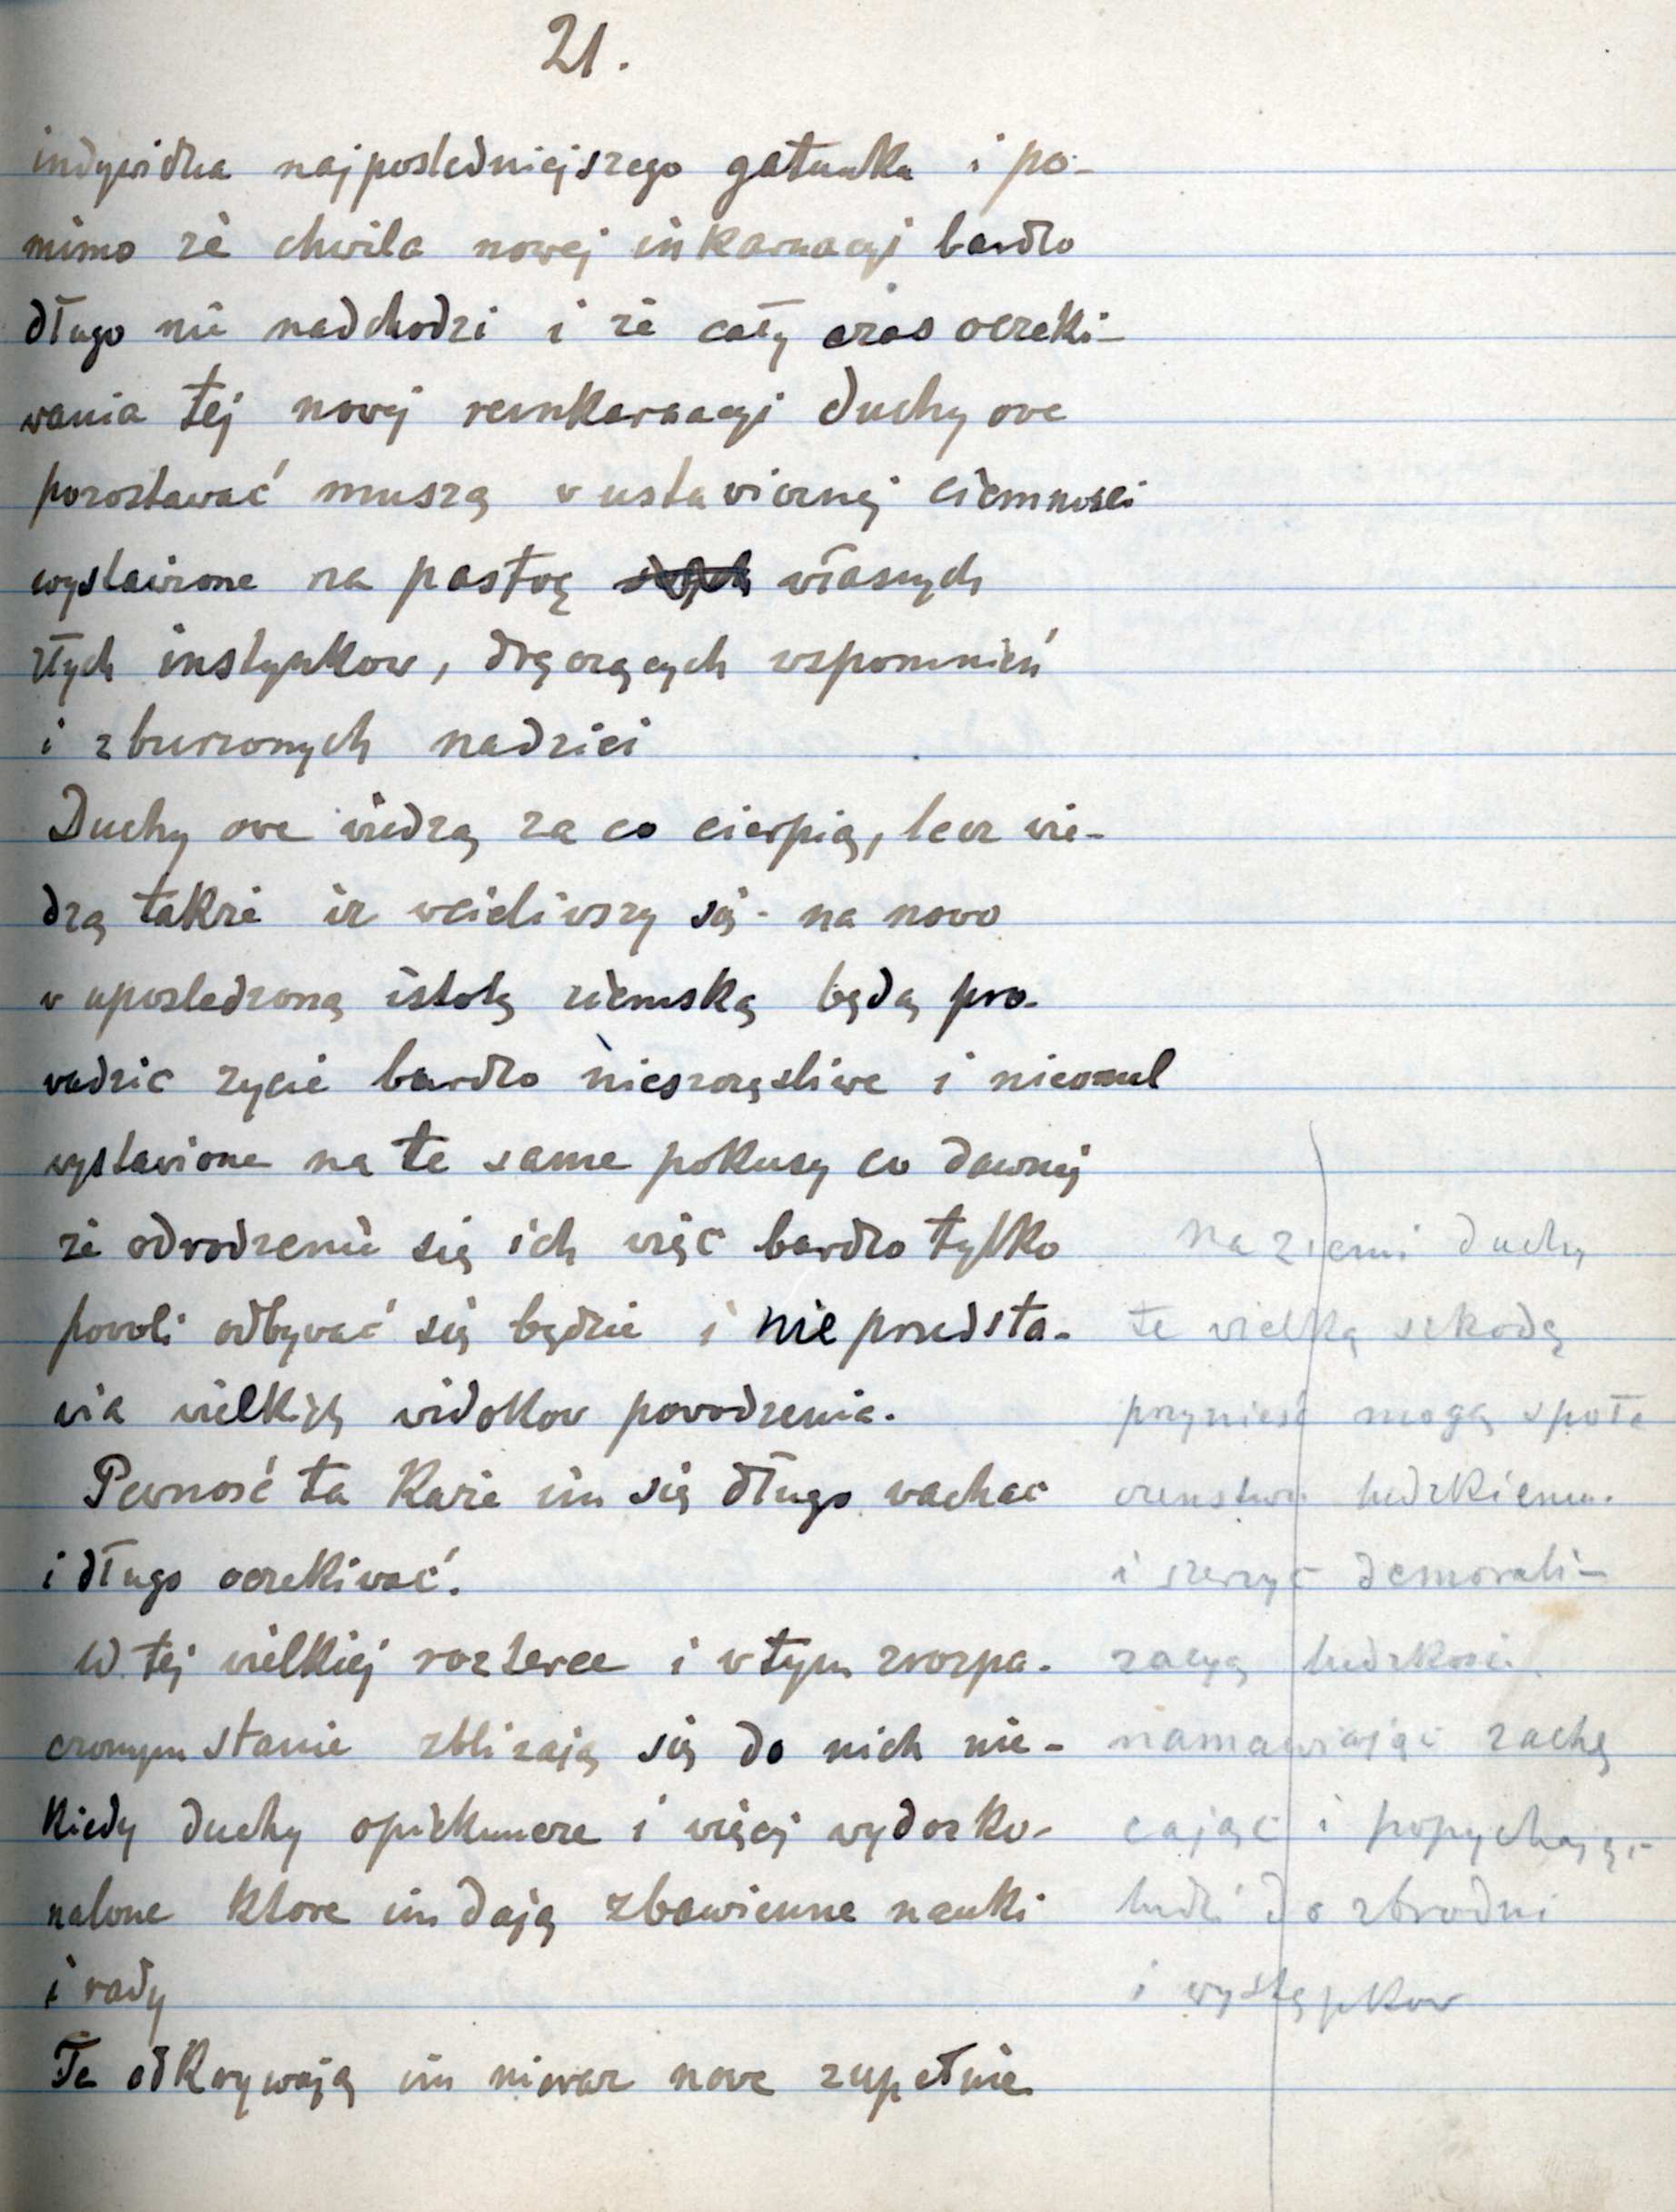 21.
indywidua najposledniejszego gatunku i po-
mimo że chwila nowej inkarnacyi bardzo
długo nie nadchodzi i że cały czas oczeki-
wania tej nowej reinkarnacyi duchy owe
pozostawać muszą w ustawicznej ciemnosci
wystawione na pastwę własnych
złych instynkow, dręczących wspomnień
i zburzonych nadziei
Duchy owe wiedzą za co cierpią, lecz wie-
dzą takze iz wcieliwszy się na nowo
w uposledzoną istotę ziemską będą pro-
wadzic zycie bardzo nieszczęsliwe i nieomal
wystawione na te same pokusy co dawniej
że odrodzenie się ich więc bardzo tylko
powoli odbywać się będzie i nie przedsta-
wia wielkich widokow powodzenia.
Pewność ta każe im się długo wachac
i długo oczekiwać.
W tej wielkiej rozterce i w tym zrozpa-
czonym stanie zblizają się do nich nie-
kiedy duchy opiekuncze i więcej wydosko-
nalone ktore im dają zbawienne nauki
i rady
Te odkrywają im nieraz nowe zupełnie
na ziemi duchy
te wielką szkodę
przynieść mogą społe
czenstwu ludzkiemu
i szerzyć demorali-
zacyą ludzkosci
namawiając zachę
cając i popychając
ludzi do zbrodni
i występkow